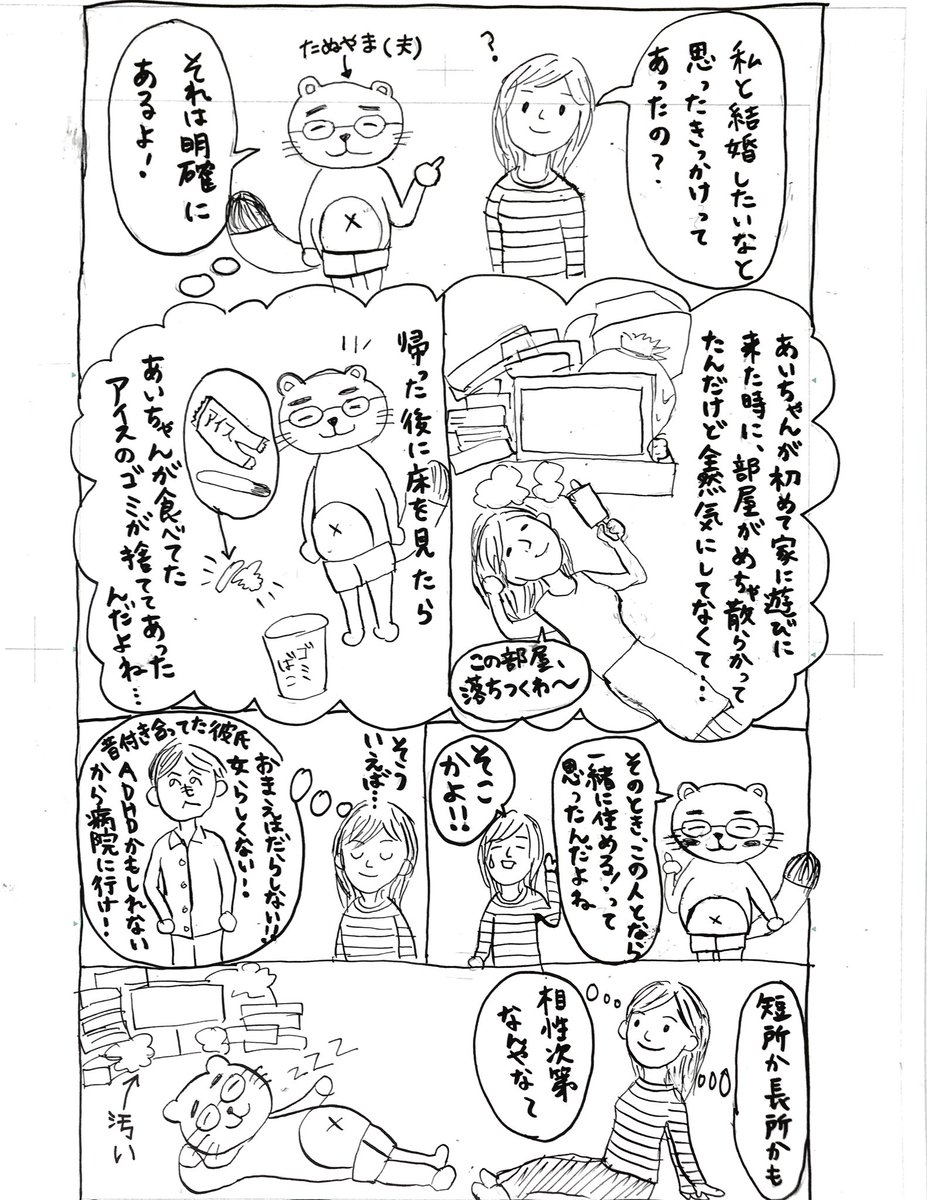 私と結婚したいなと
思ったきっかけって
あったの?
?
たぬやま(夫)
それは明確に
あるよ!
あいちゃんが初めて家に遊びに
来た時に、部屋がめちゃ散らかって
たんだけど全然気にしてなくて…
この部屋、
落ちつくわ〜
帰った後に床を見たら
アイス
ゴミ
ばこ
あいちゃんが食べてた
アイスのゴミが捨ててあった
んだよね…
そのとき、この人となら
一緒に住める!って
思ったんだよね
そこ
かよ!!
そう
いえば…
昔付き合ってた彼氏
おまえはだらしない!!
女らしくない!
ADHDかもしれない
から病院に行け!
短所か長所かも
相性次第
なんやなて
ZZZ
汚い